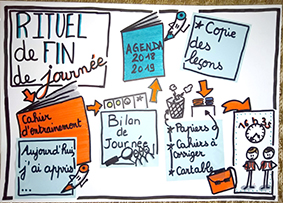 RITUEL
de FIN
de journée
AGENDA
2018
2019
* Copie
des
leçons
Cahier
d'entraînement
Aujourd'hui
j'ai appris
...
Bilan
de
Journée
* Papiers
* Cahiers à
corriger
* Cartable